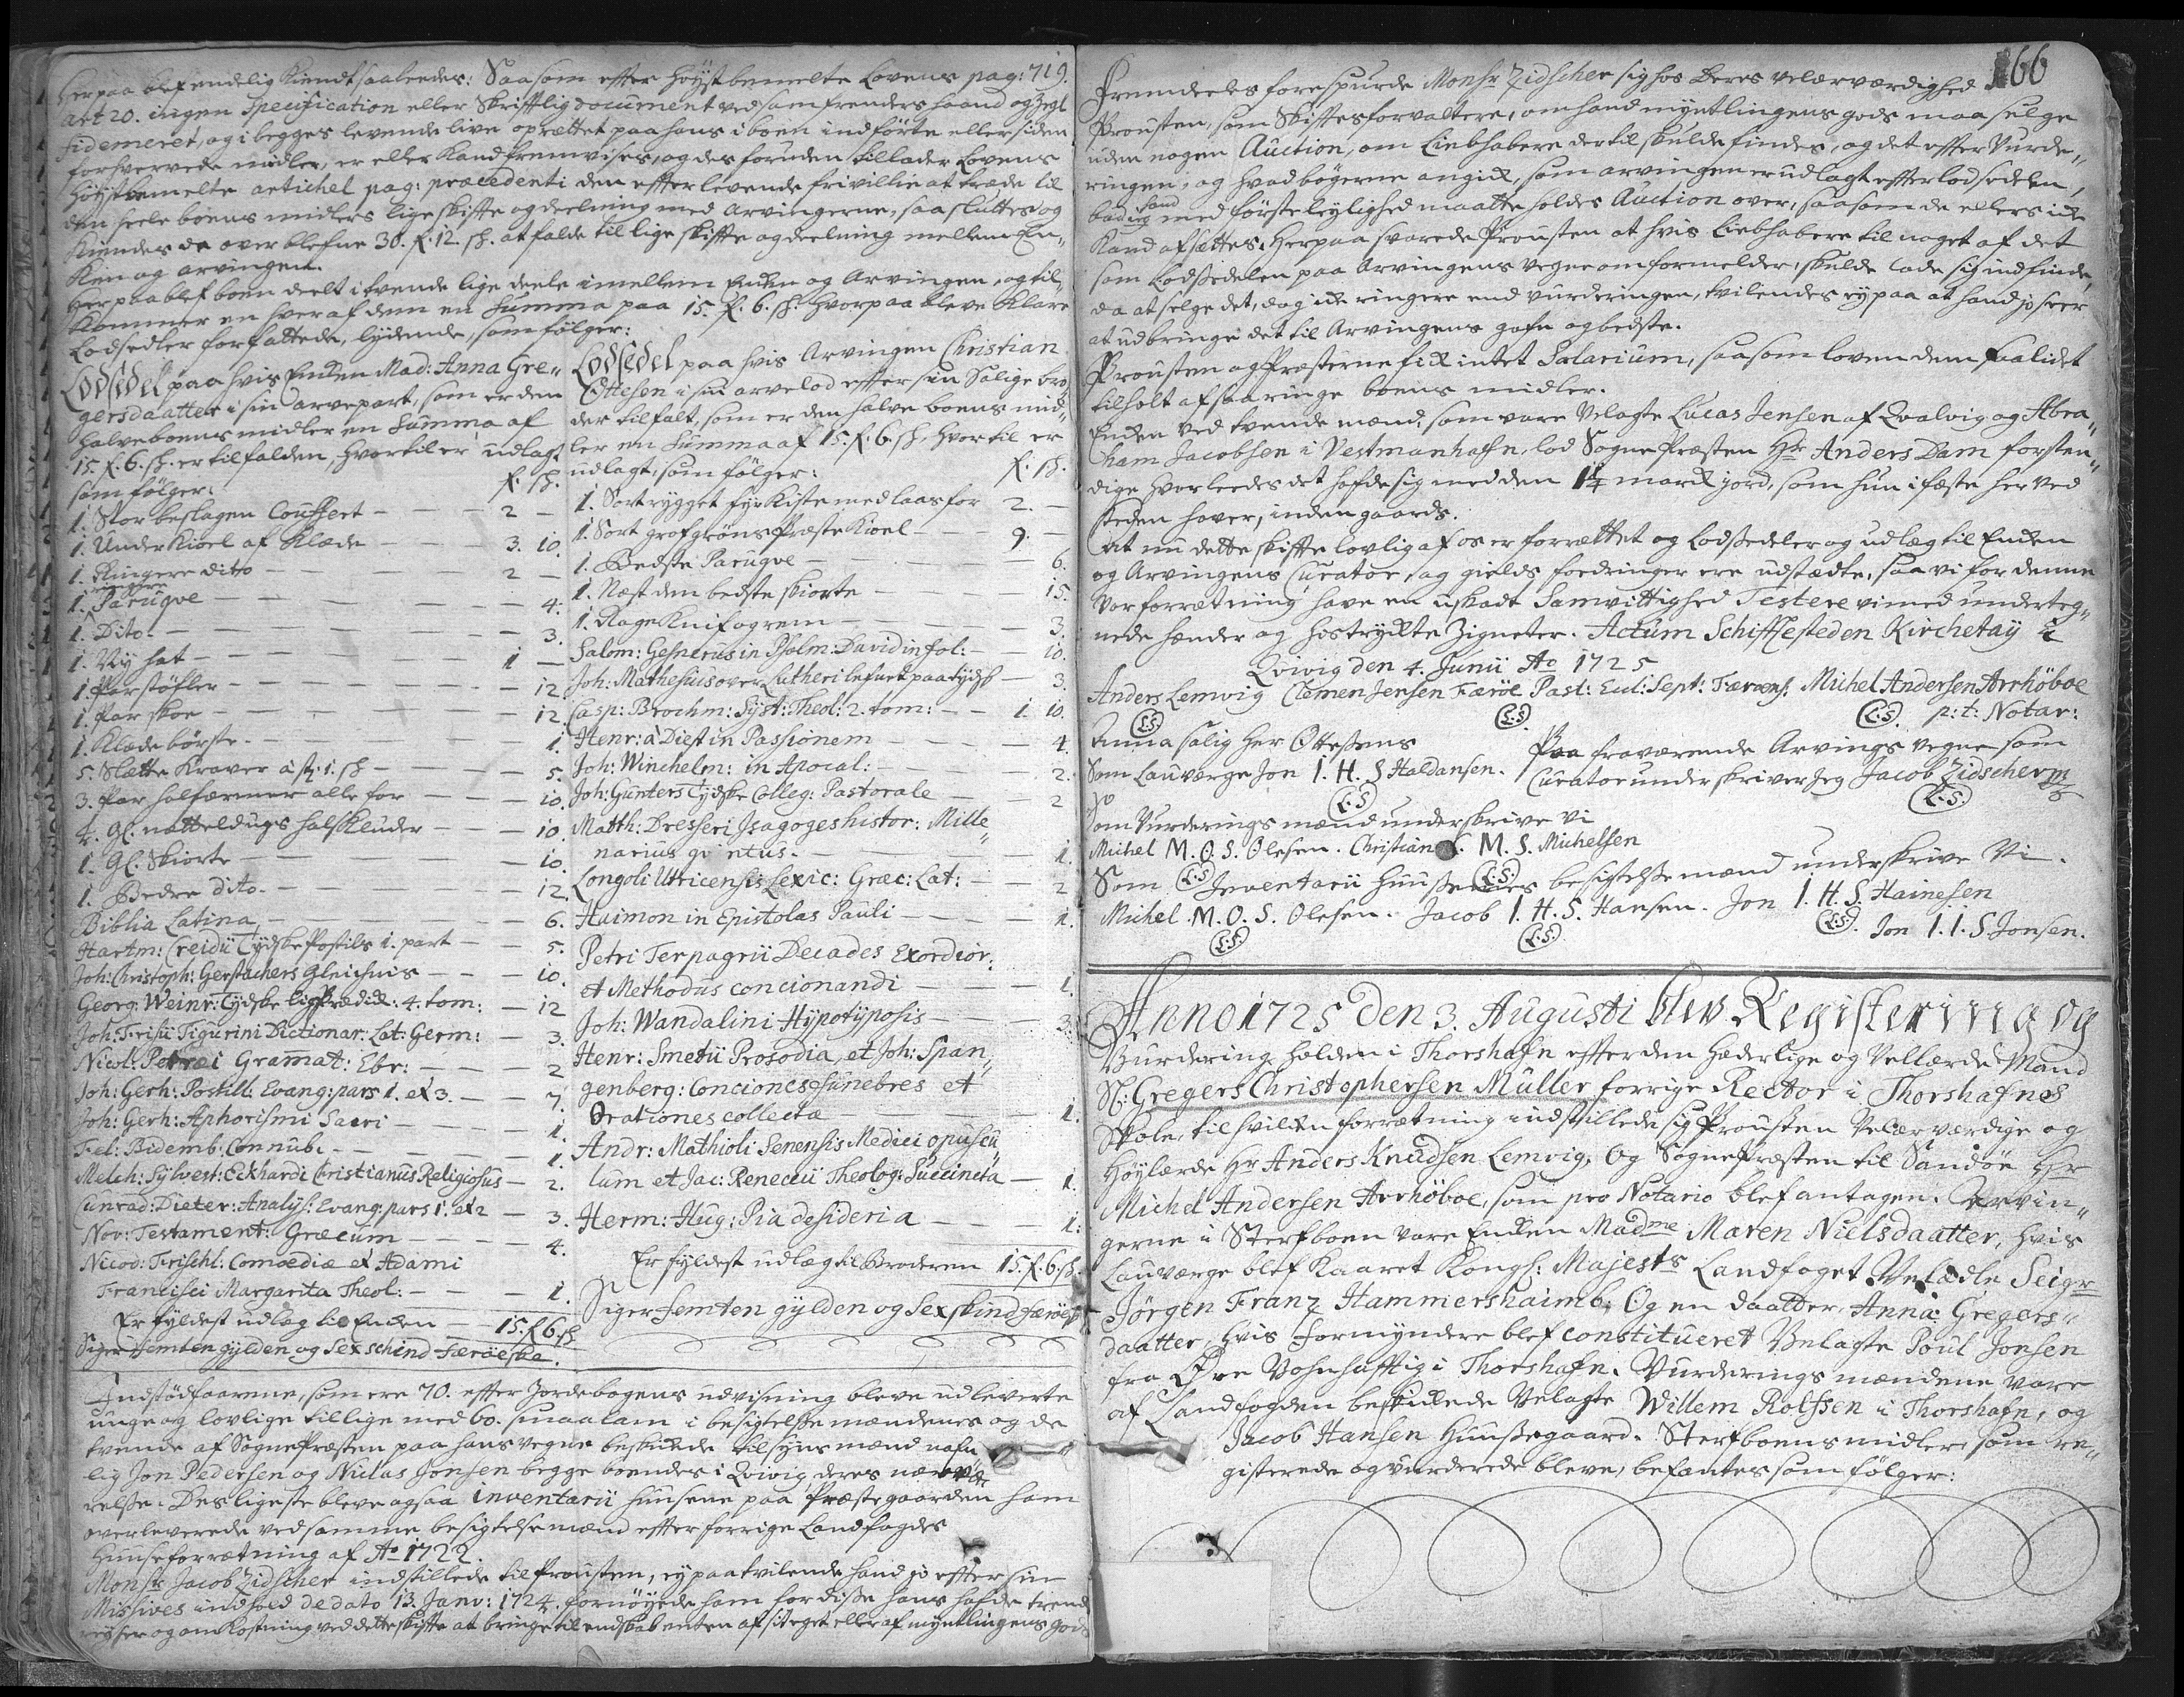 Herpaa blef endelig kiendt saaledes: Saasom effter høystbemelte Lovens pag: 719.
art 20. ingen Specification eller Skrifftlig document ved samfrenders haand og Zegl
fidemeret, og i begges levende live oprættet paa hans i boen indførte eller siden
forhvervede midler, er eller kand fremvises, og des foruden tillader Lovens
Høystbemelte artichel pag: præcedenti den effterlevende frivillie at træde til
den heele boens midlers lige skiffte og deelning med Arvingerne, saa sluttes og
kiendes da overblefne 30. f. 12. sk. at falde til lige skiffte og deelning mellem En„
kien og arvingen.
Herpaa blef boen deelt i tvende lige deele imellem Enken og Arvingen, og til„
kommer en hver af dem en Summa paa 15. f. 6. sk. hvorpaa bleve klare
Lodsedler forfattede, lydende, som følger:
Lodsedel paa hvis Enken Mad: Anna Gre„
gersdaatter i sin arvepart, som er den
halve boens midler en Summa af
15. f. 6. sk. er tilfalden, hvortil er udlagt
som følger: f. sk.
1. Stor beslagen Couffert - 2 -
1. Underkioel af Klæde - 3. 10.
1. Ringere ditto - 2 -
1. ringere Parugve - 4.
1. Dito. - 3.
1. Ny hat - 1 -
1. Par støfler - 12
1. Par skoe - 12.
1. Klædebørste. - 1.
5. Slætte Kraver à st: 1. sk - 5.
3. Par halfærmer alle for - 10.
4. Gl. natteldugs halskluder - 10.
1. Gl. Skiorte - 10.
1. Bedre dito. - 12.
Biblia Latina - 6.
Hartm: Creidii Tydske Postils 1. part - 5.
Joh: Christoph: Gerstachers Gleichnis - 10.
Georg: Weinr: Tydske ligPrædik: 4. tom: - 12
Joh: Frisii Tigurini Dictionar: Lat: Germ: - 3.
Nicol: Petræi Gramat: Ebr: - 2
Joh: Gerh: Postill: Evang: pars 1. et 3. - 7.
Joh: Gerh: Aphorismi Sacri - 1.
Fel: Bidemb: Connub. - 1.
Melch: Sylvest: Eckhardi Christianus Religiosus - 2.
Cunrad: Dieter: Analys: Evang: pars 1. et 2 - 3.
Nov: Testament: Græcum - 4.
Nicod: Frischl: Comoediæ et Adami
Francisci Margarita Theol: - 1.
Er fyldest udlæg til Enken - 15. f 6. sk
Siger femten gylden og Sex schind Færøeske.
Lodsedel paa hvis Arvingen Christian
Ottesen i sin arvelod effter sin Salige bro„
der tilfalt, som er den halve boens mid„
ler en Summa af 15. f. 6. sk. hvortil er
udlagt, som følger: f. sk.
1. Sort rygget fyrkiste med laas for 2. -
1. Sort grofgrøns Præste Kioel - 9. -
1. Bedste Parugve - 6.
1. Næst den bedste skiorte - 15.
1. Rage Knif og rem - 3.
Salom: Gesnerus in Psalm: David in fol: - 10.
Joh: Mathesius over Lutheri lefnet paa tydsk - 3.
Casp: Brochm: Syst: Theol: 2. tom: - 1. 10.
Henr: à Diest in Passionem - 4.
Joh: Winchelm: in Apocal: - 2.
Joh: Gunters Tydske Colleg: Pastorale - 2
Matth: Dresseri Isagoges histor: Mille„
narius qvintus. - 1.
Longoli Utricensis Lexic: Græc: Lat: - 2
Haimon in Epistolas Pauli - 1.
Petri Terpagrii Decades Exordior:
et Methodus concionandi - 1.
Joh: Wandalini Hypotyposis - 3.
Henr: Smetii Prosodia, et Joh: Span„
genberg: Conciones funebres et
Orationes collectæ - 1.
Andr: Mathioli Senensis Medici opuscu„
lum et Jac: Reneccii Theolog: Succincta - 1.
Herm: Hug: Pia desideria - 1.
Er fyldest udlæg til Broderen 15. f. 6. sk.
Siger femten gylden og Sex skind færøesk
Indstødfaarene, som ere 70. effter Jordebogens udvisning bleve udleverte
unge og lovlige tillige med 60. smaa lam i besigtelsse mændenes og de
tvende af SognePræsten paa hans vegne beskikkede tilsyns mænd nafn„
lig Jon Pedersen og Niclas Jonsen begge boendes i Qvivig deres nærvæ„
relsse. Desligeste bleve ogsaa inventarii huusene paa Præstegaarden ham
overleverede ved samme besigtelsemænd effter forrige Landfogdes
Huuseforrætning af Ao 1722.
Monsr Jacob Zidscher indstillede til Prousten, ey paatvilende hand jo effter sin
Missives indhold de dato 13. Janv: 1724. fornøyede ham for disse hans hafde trende
reyser og omkostning ved dette skiffte at bringe til endskab enten af sit eget eller af myntlingens gods
166
Fremdeeles forespurde Monsr Zidscher sig hos Deres velærværdighed
Prousten, som Skifftesforvaltere, om hand myntlingens gods maa selge
uden nogen Auction, om Liebhabere dertil skulde findes, og det effter Vurde„
ringen; og hvad bøgerne angik, som arvingen er udlagt effter lodsedelen,
bad hand med første leylighed maatte holdes Auction over, saasom de ellers ikke
kand afsættes. Herpaa svarede Prousten at hvis Liebhabere til noget af det
som Lodsedelen paa Arvingens vegne omformelder, skulde lade sig indfinde,
da at selge det, dog ikke ringere end vurderingen, tvilendes ey paa at hand jo seer
at udbringe det til Arvingens gafn og bedste.
Prousten og Præsterne fik intet Salarium, saasom loven dem saalidet
tilholt af saa ringe boens midler.
Enken ved tvende mænd, som vare Velagte Lucas Jensen af Qvalvig og Abra„
ham Jacobsen i Vestmanhafn, lod SognePræsten Hr Anders Dam forstæn„
dige hvorleedes det hafde sig med den 1¼ mark jord, som hun i fæste her ved
steden haver, inden gaards.
At nu dette skiffte lovlig af os er forrættet og Lodsedeler og udlæg til Enken
og Arvingens Curator, og gields fordringer ere udstædte, saa vi for denne
vor forrætning have en uskadt Samvittighed Testere vi med underteg„
nede hænder og hostrykte Zigneter. Actum Schiffesteden Kirchetay i
Qvivig den 4. Junii Ao 1725
Anders Lemvig Clemen Jensen Færöe Past: Eccl: Sept: Færoens: Michel Andersen Arrhöboe
L.S. L.S. L.S. p: t: Notar:
Anna salig Her Ottesens Paa fraværende Arvings vegne som
Som Lauværge Jon I. H. S Haldansen. Curator underskriver Jeg Jacob Zidscher
L.S L.S.
Som Vurderings mænd underskrive Vi
Michel M. O. S. Olesen. Christian M. S. Michelsen
Som L.S Inventarii huusenes L.S. besigtelsse mænd underskrive Vi.
Michel M. O. S. Olesen. Jacob I. H. S. Hansen. Jon I. H. S. Hainesen
L.S. L.S. L.S. Jon I. I. S. Jonsen.
Anno 1725 den 3. Augusti blev Registering og
Vurdering holden i Thorshafn effter den Hæderlige og Vellærde Mand
Sl: Gregers Christophersen Müller forrige Rector i Thorshafnes
Skole, til hvilken forrætning indstillede sig Prousten Velærværdige og
Høylærde Hr Anders Knudsen Lemvig, Og SognePræsten til Sandöe Hr
Michel Andersen Arrhöboe, som pro Notario blef antagen. Arvin„
gerne i Sterfboen vare Enken Madme Maren Nielsdaatter, hvis
Lauværge blef Kaaret Kongl: Majests Landfoget Velædle Seigr
Jörgen Franz Hammershaimb; Og en daatter, Anna Gregers„
daatter, hvis Formyndere blef constitueret Velagte Poul Jonsen
fra Øre Vohnhafftig i Thorshafn. Vurderings mændene vare
af Landfogden beskikkede Velagte Willem Rolfssen i Thorshafn, og
Jacob Hansen Huusegaard. Sterfboens midler, som re„
gisterede og vurderede bleve, befantes som følger: